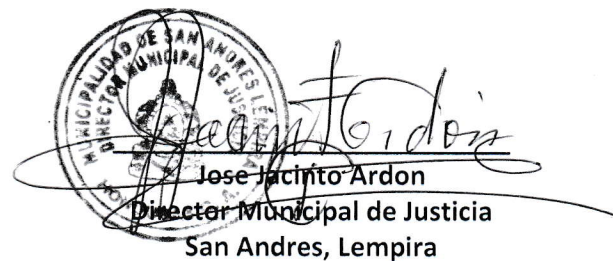 MUNICIPALIDAD DE SAN ANDRES LEMPIRA
DIRECTOR MUNICIPAL DE JUSTICIA
HON
Jacinto Ardon
Jose Jacinto Ardon
Director Municipal de Justicia
San Andres, Lempira